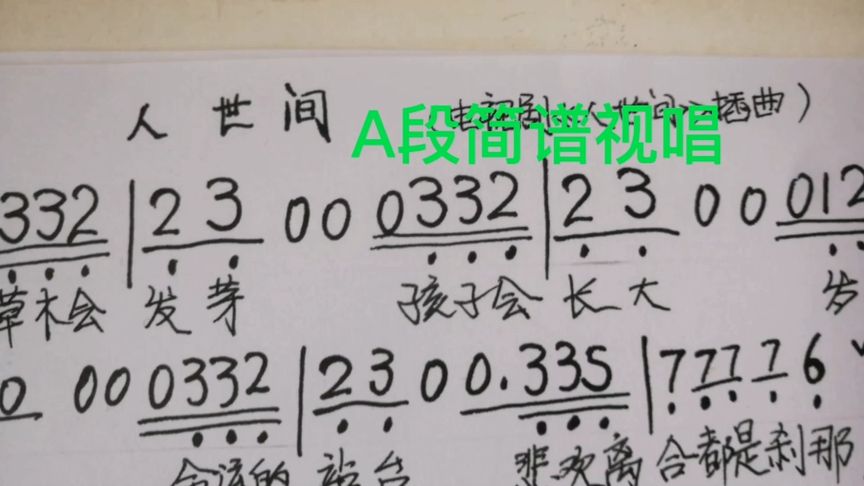 人世间 (电视剧人世间插曲)
A段简谱视唱
332 | 23 00 0332 | 23 00 012
草木会 发芽 孩子会 长大 岁
0 00 0332 | 23 0 0.335 | 7777 6
命运的 站台 悲欢离 合都是刹那